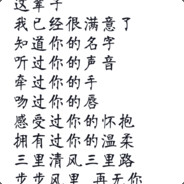 这辈子
我已经很满意了
知道你的名字
听过你的声音
牵过你的手
吻过你的唇
感受过你的怀抱
拥有过你的温柔
三里清风三里路
步步风里 再无你